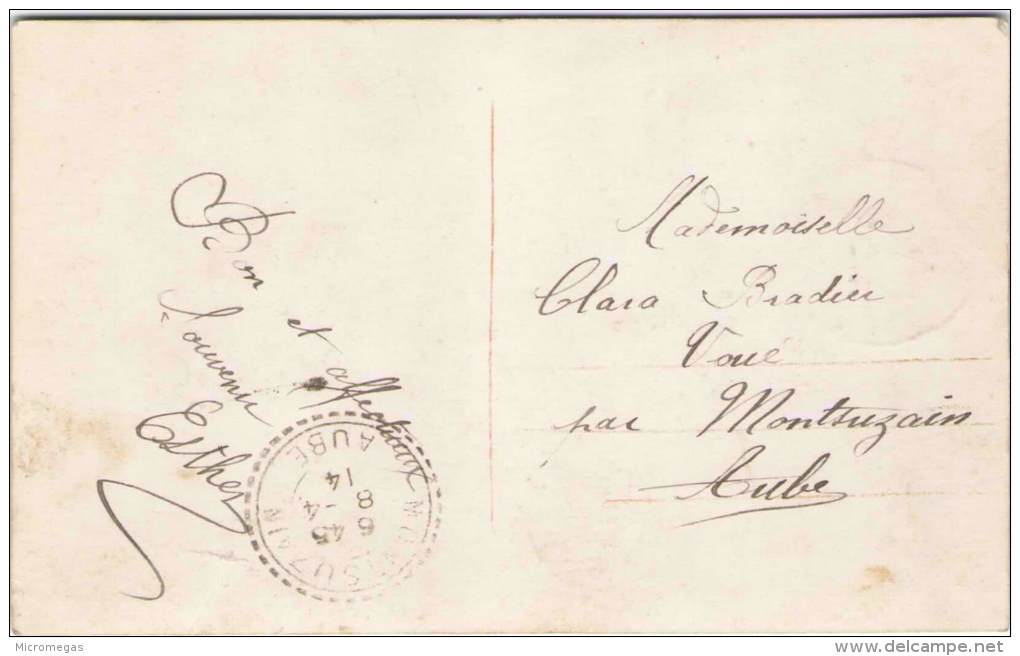 Bon et affectueux
Souvenir
Esther
Mademoiselle
Clara Bradier
Voué
par Montsuzain
Aube
MONTSUZAIN
6 45
8 -4
14
AUBE
Micromegas
www.delcampe.net